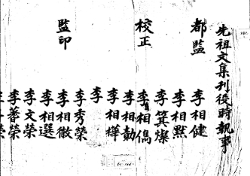 先祖文集刊後時執事
都監 李相健
李相默
李箕燦
校正 李相偶
李相勛
李相樺
李
李秀榮
監印 李相徹
李相選
李文榮
李善榮